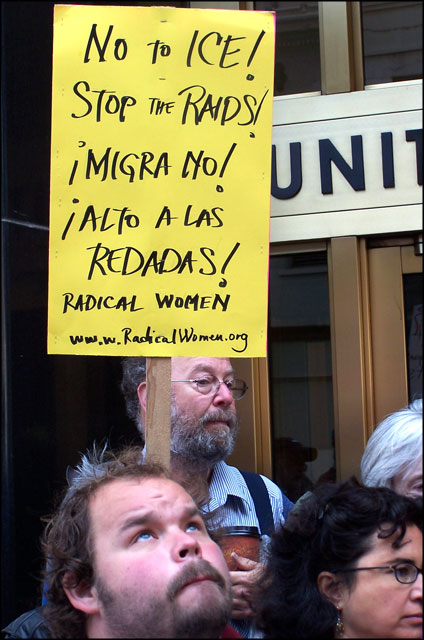 No to ICE!
STOP THE RAIDS!
¡MIGRA NO!
¡ALTO A LAS
REDADAS!
RADICAL WOMEN
www.RadicalWomen.org
UNIT